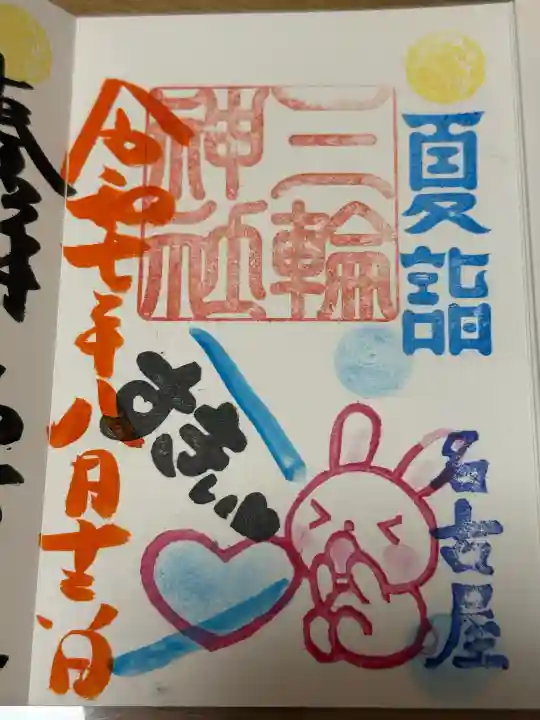 夏詣
名古屋
三輪
神社
あちぃ
令和七年八月十二日